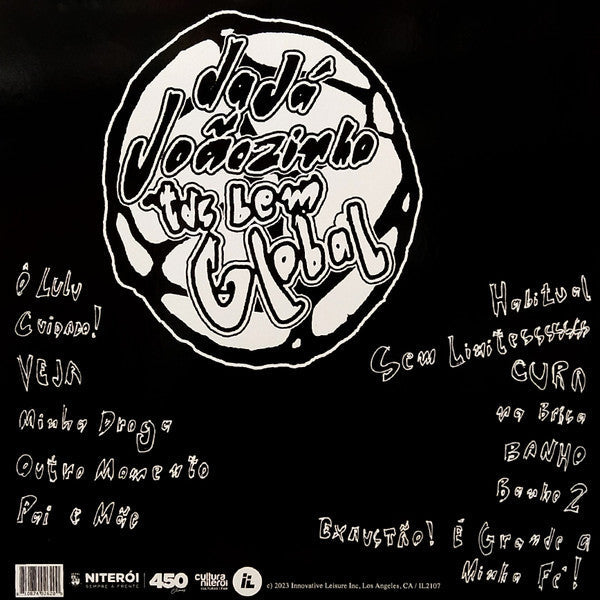 dadá
Joãozinho
tds bem
Global
Ô Lulu
Cuidado!
VEJA
Minha Droga
Outro Momento
Pai e Mãe
Habitual
Sem Limitessssssss
CURA
na Brisa
BANHO
Banho 2
EXAUSTÃO! É Grande a
Minha Fé!
NITERÓI
SEMPRE À FRENTE
450
Anos
cultura
niterói
IL
c) 2023 Innovative Leisure Inc, Los Angeles, CA / IL2107